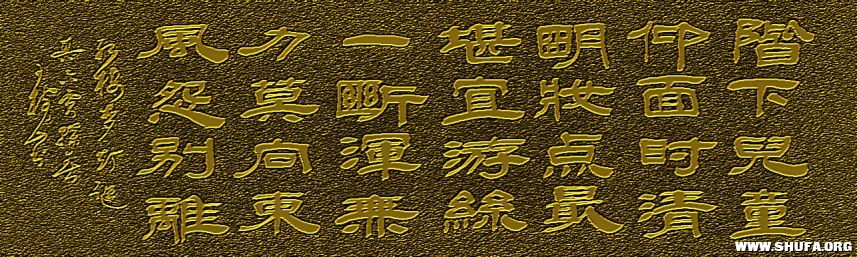 階下兒童
仰面时清
明妝点最
堪宜游絲
一斷渾無
力莫向東
風怨别離
WWW.SHUFA.ORG